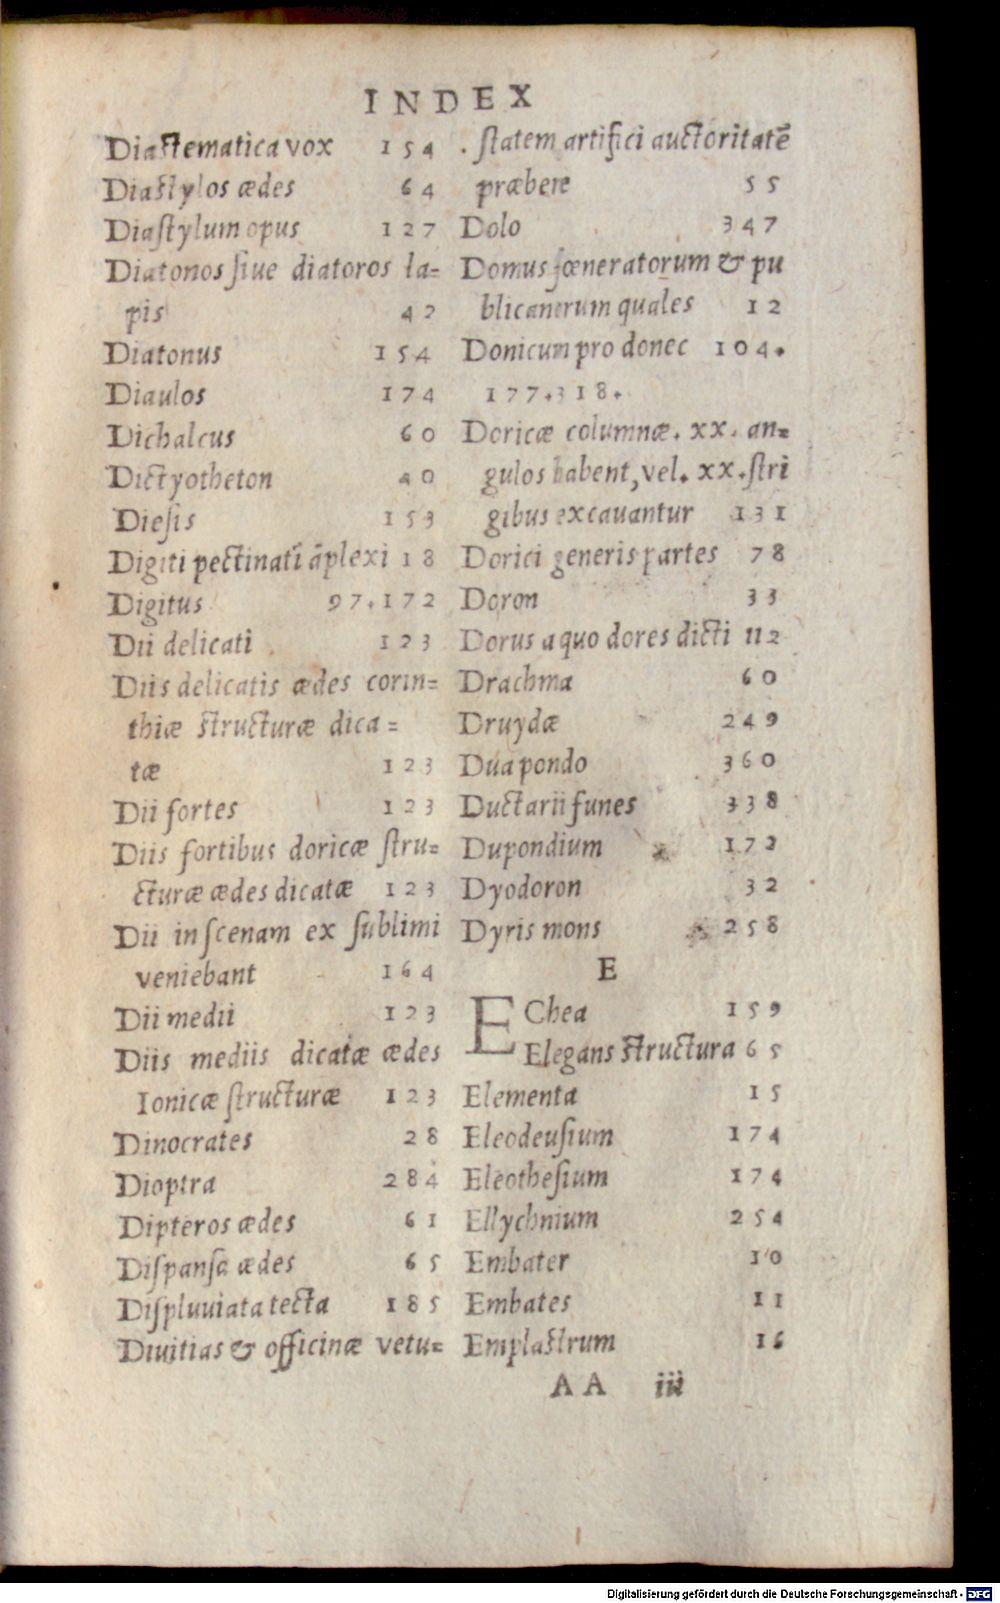 INDEX
Diastematica vox 154
Diastylos ædes 64
Diastylum opus 127
Diatonos siue diatoros la=
pis 42
Diatonus 154
Diaulos 174
Dichalcus 60
Dictyotheton 40
Diesis 153
Digiti pectinatī āplexi 18
Digitus 97.172
Dii delicati 123
Diis delicatis ædes corin=
thiæ structuræ dica=
tæ 123
Dii fortes 123
Diis fortibus doricæ stru=
cturæ ædes dicatæ 123
Dii in scenam ex sublimi
veniebant 164
Dii medii 123
Diis mediis dicatæ ædes
Ionicæ structuræ 123
Dinocrates 28
Dioptra 284
Dipteros ædes 61
Dispansa ædes 65
Displuuiata tecta 185
Diuitias & officinæ vetu=
statem artifici auctoritatē
præbere 55
Dolo 347
Domus fœneratorum & pu
blicanerum quales 12
Donicum pro donec 104.
177.318.
Doricæ columnæ. xx. an=
gulos habent, vel. xx. stri
gibus excauantur 131
Dorici generis partes 78
Doron 33
Dorus a quo dores dicti 112
Drachma 60
Druydæ 249
Dua pondo 360
Ductarii funes 338
Dupondium 172
Dyodoron 32
Dyris mons 258
E
EChea 159
Elegans structura 65
Elementa 15
Eleodeusium 174
Eleothesium 174
Ellychnium 254
Embater 10
Embates 11
Emplastrum 16
AA iii
Digitalisierung gefördert durch die Deutsche Forschungsgemeinschaft - DFG